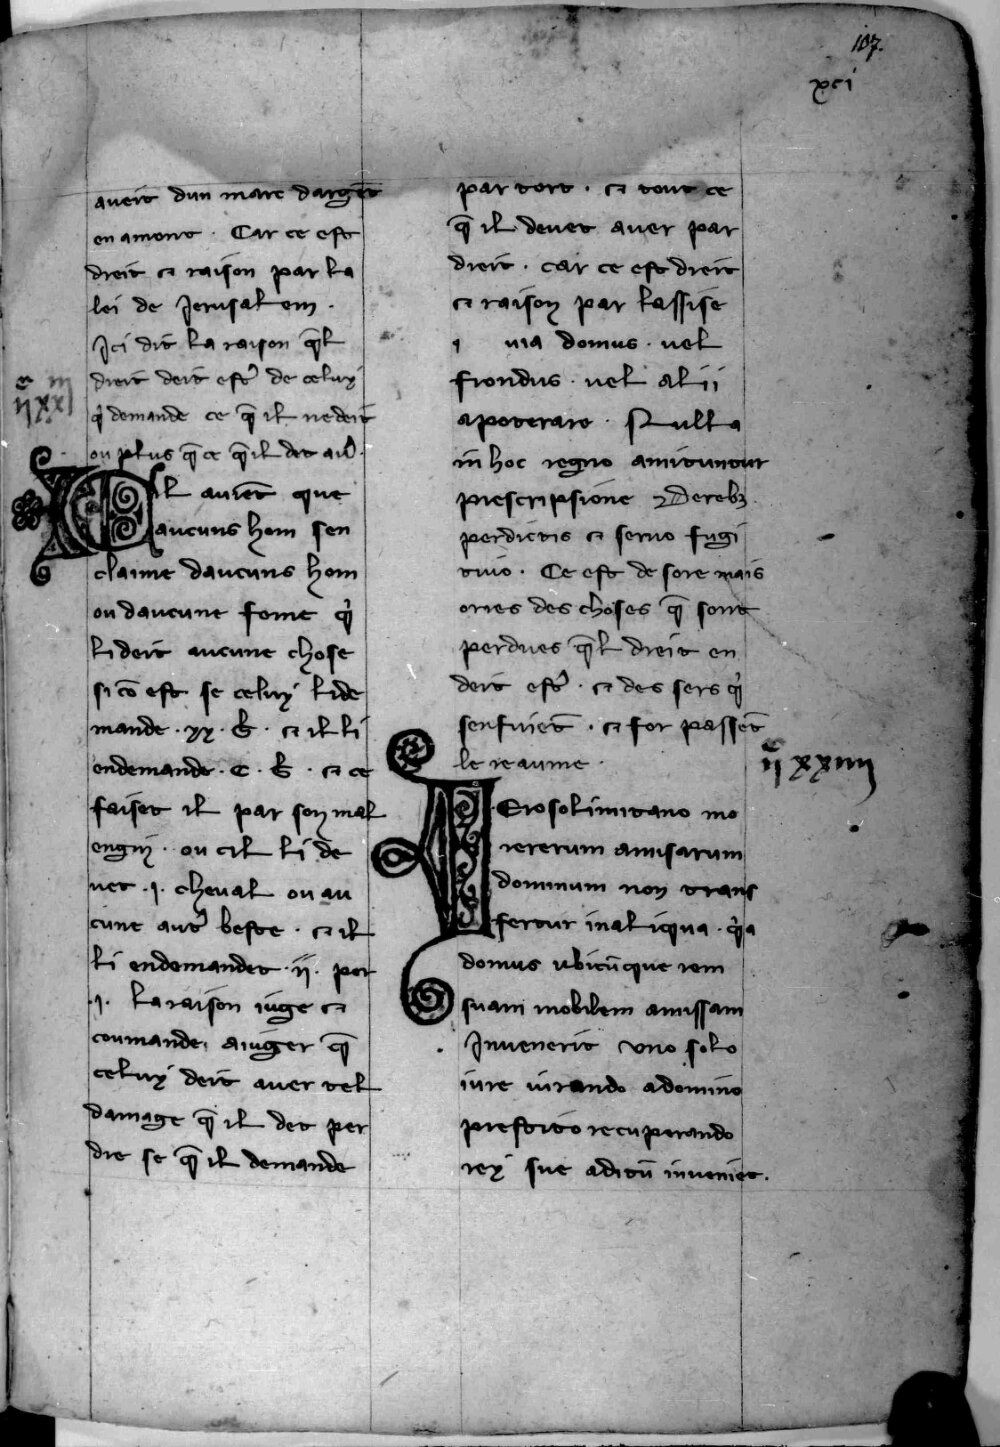 107.
xci
aveit dun marc dargēt
en amont . Car ce est
dreit ⁊ raison par la
lei de Jerusalem .
Ici dit la raison q̄l
dreit deit estr̉ de celuy
q̇ demande ce q̄ il ne deit
ou plus q̄ ce q̄ il det av̉ .
Cil avient que
aucuns hom sen
claime daucuns hom
ou daucune feme q̇
li deit aucune chose
si cō est se celuy li de
mande . xx . ƀ . ⁊ il li
en demande . C . ƀ . ⁊ ce
faiset il par son mal
engin . ou cil li de
vet . i . cheval ou au
cune autr̉ beste . ⁊ il
li en demandet . ii . por
. i . la raison iuge ⁊
coumande a iuger q̄
celuy deit aver tel
damage q̄ il det per
dre se q̄ il demande
par tort . ⁊ tout ce
q̄ il devet aver par
dreit . car ce est dreit
⁊ raison par lassise
i via domus . vel
frondus . vel alii
apoterare . Nulla
in hoc regno amituntur
prescripsione ⁊ De rebꝫ
perdictis ⁊ servo fugi
tivo . Ce est de sore mais
ories des choses q̄ sont
perdues q̄l dreit en
deit estr̉ . ⁊ des sers q̇
senfuiēt . ⁊ for passēt
le reaume .
ii xxiiii
Ierosolimitano mo
re rerum amisarum
dominum non trans
fertur in aliqua . q̇a
domus ubicūque rem
suam mobilem amissam
Invenerit uno solo
iure iurando a domino
prestito recuperando
rey sue aditū inveniet .